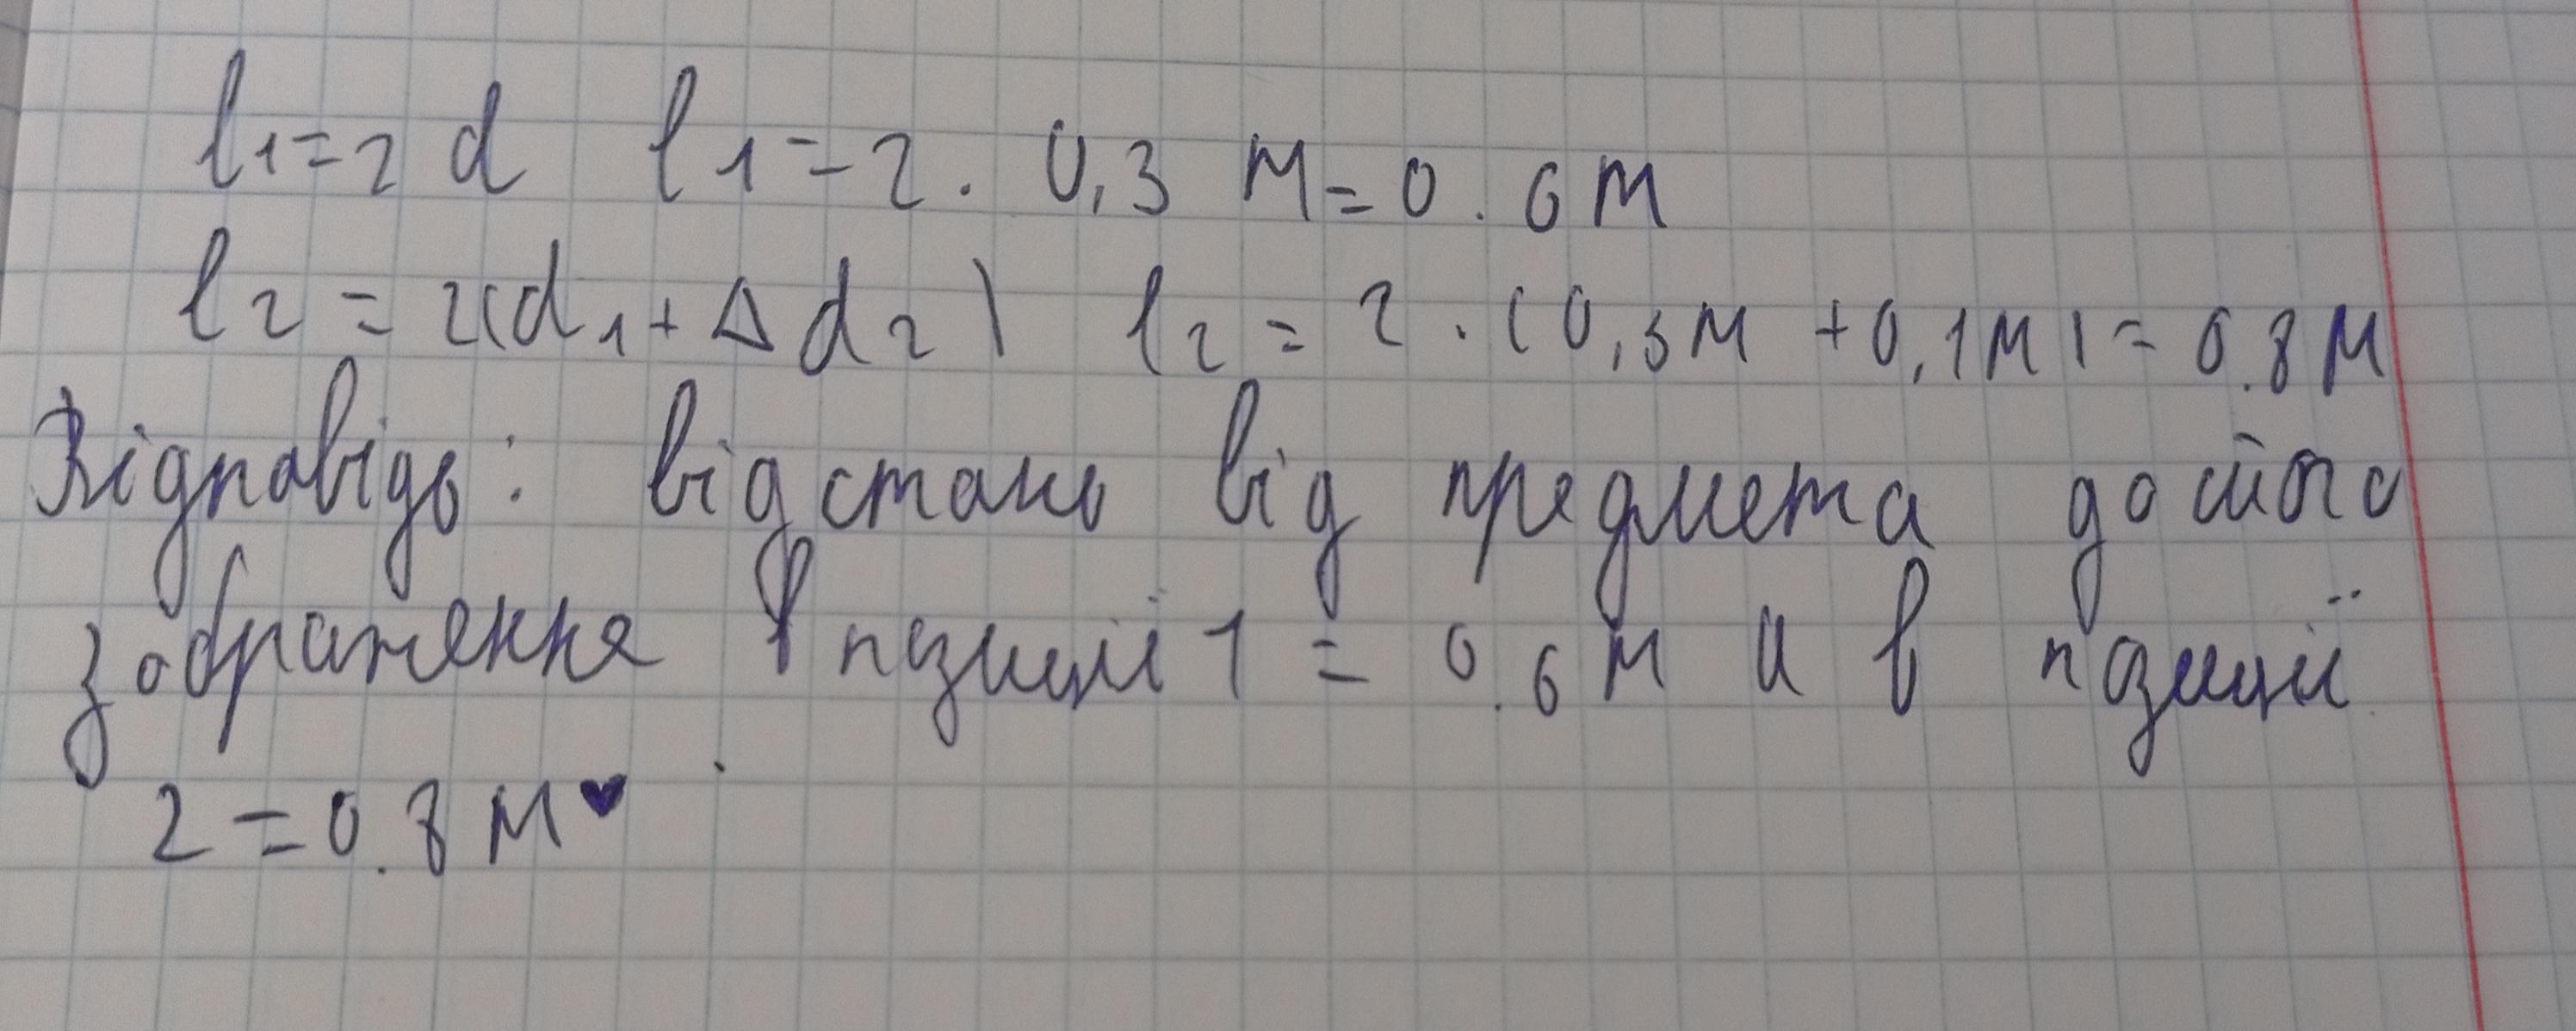 l1=2d l1=2. 0,3 м=0.6м
l2=2(d1+Δd2) l2=2.(0,3м+0,1м)=0.8м
Відповідь: відстань від предмета до його
зображення в пзиції 1 = 0.6м а в пзиції
2=0.8м♥